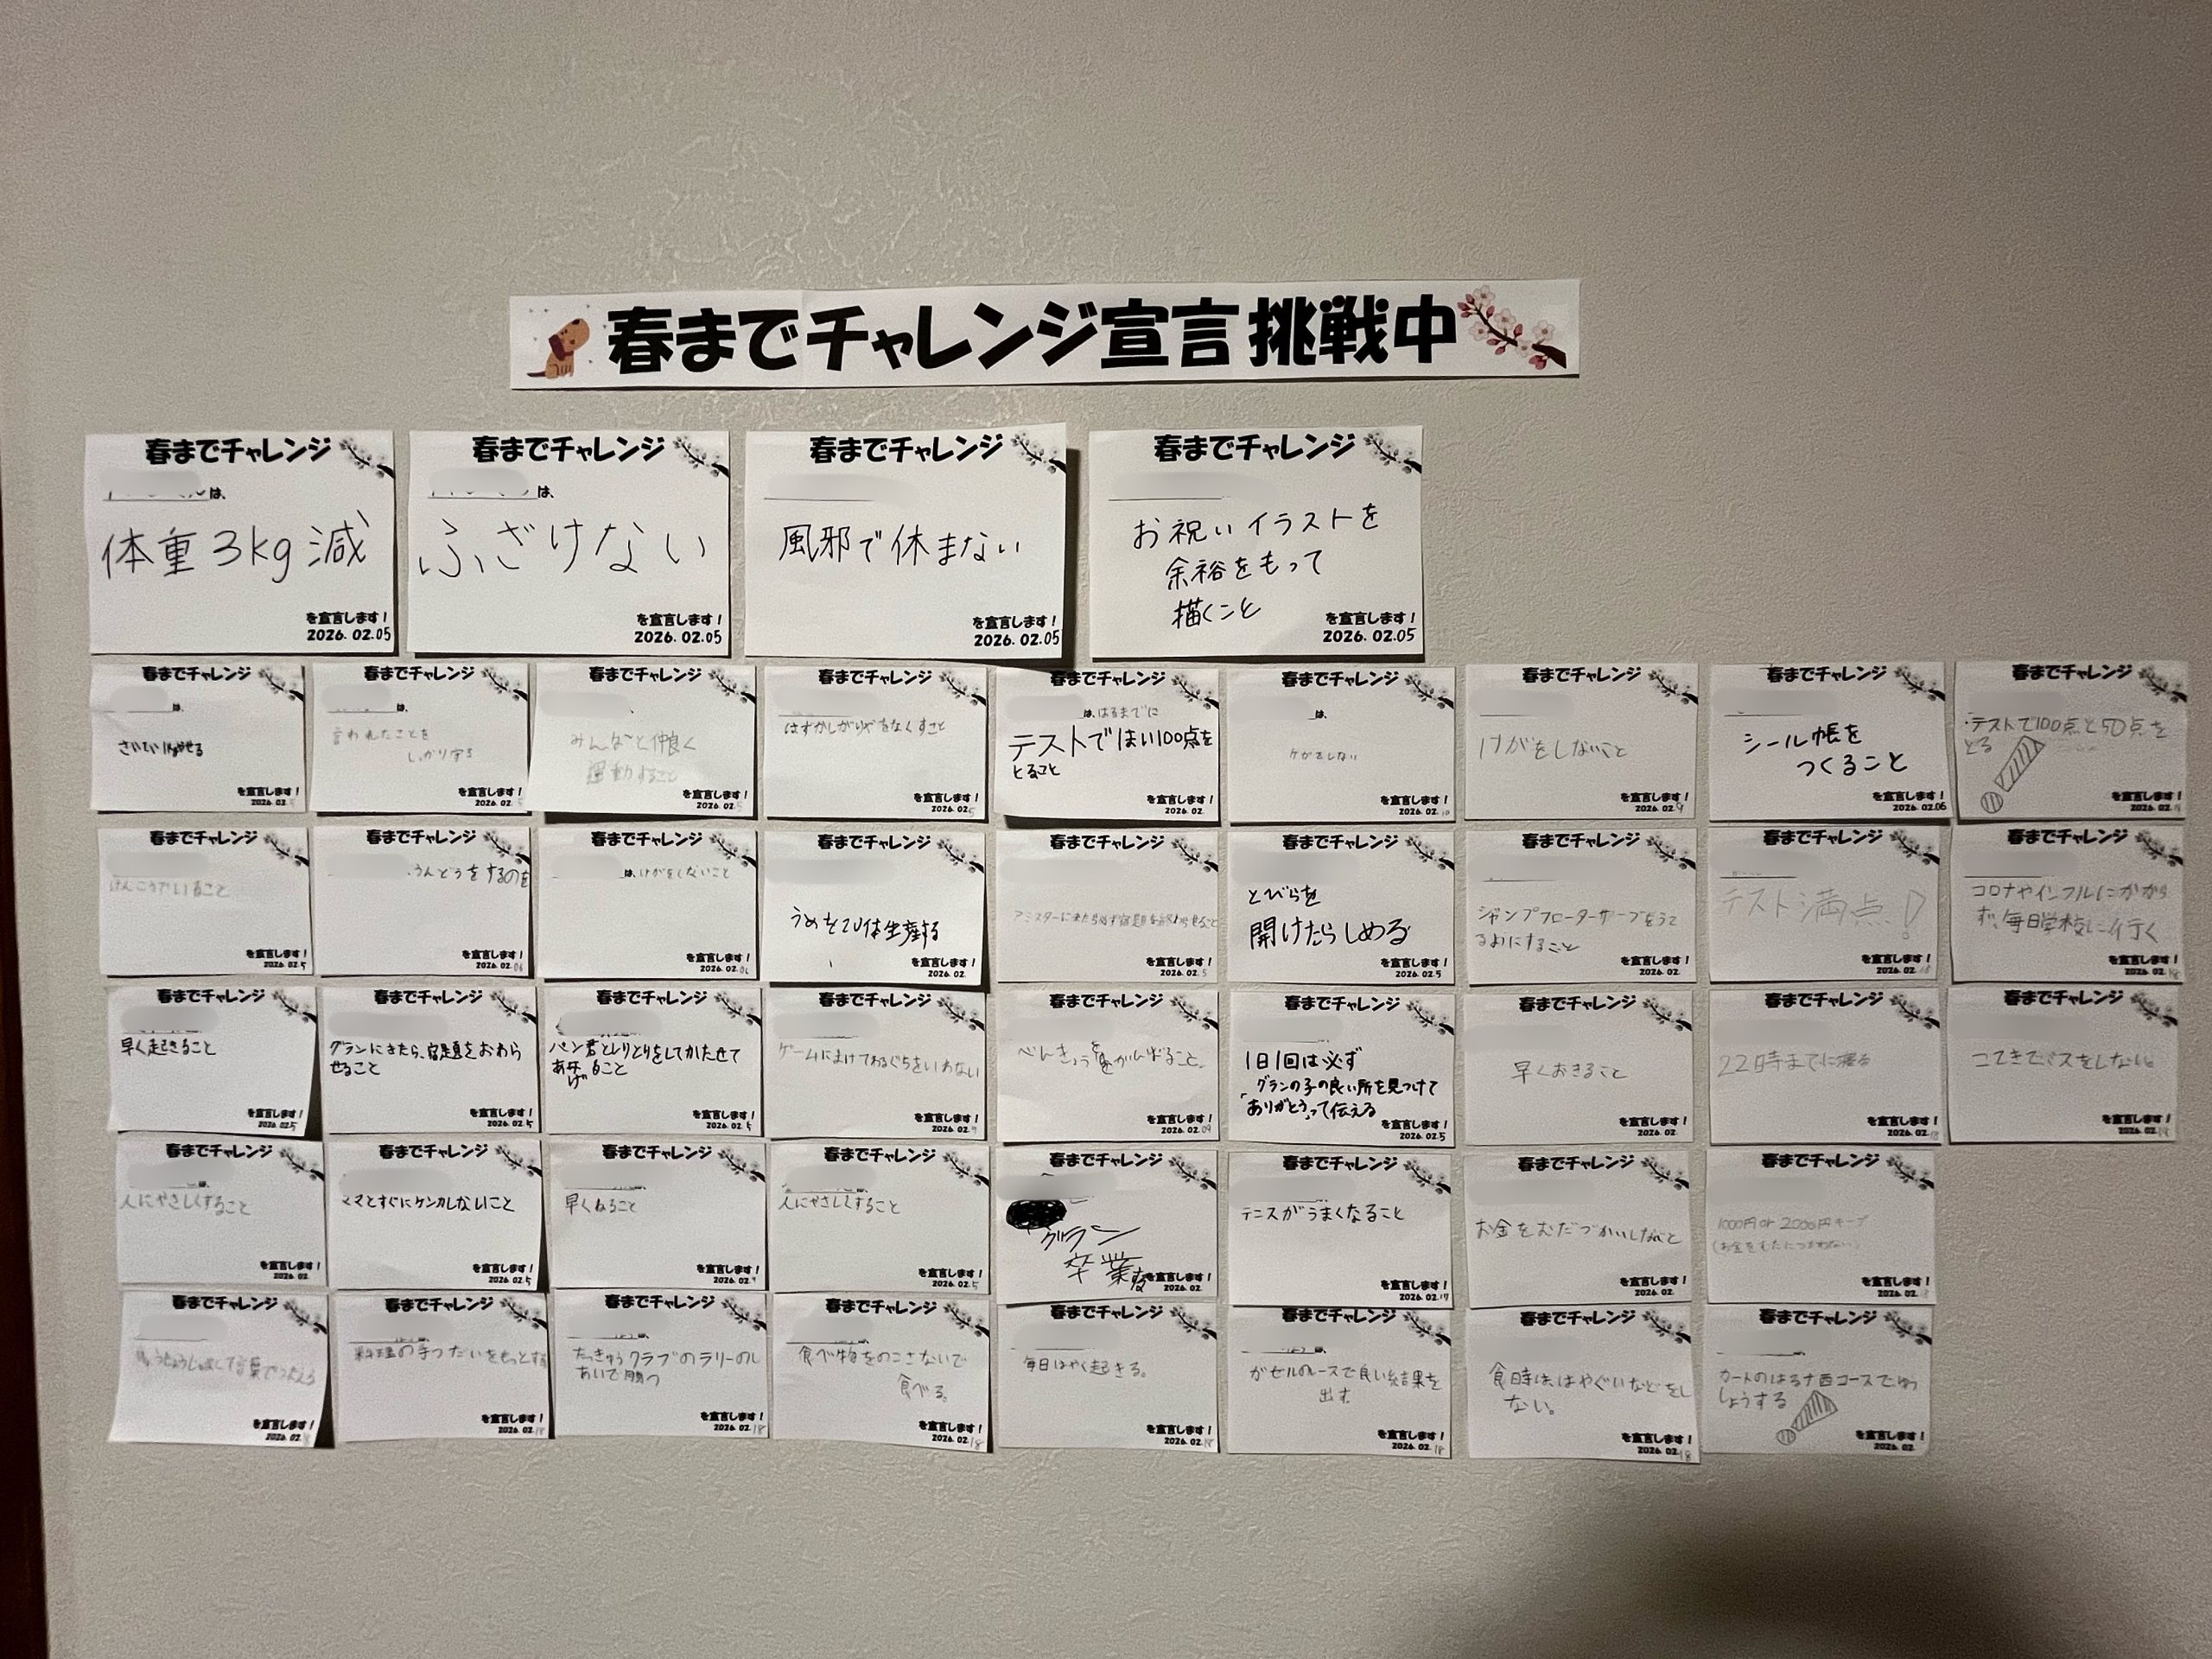 春までチャレンジ宣言 挑戦中
春までチャレンジ
は、
体重3kg減
を宣言します!
2026.02.05
春までチャレンジ
は、
ふざけない
を宣言します!
2026.02.05
春までチャレンジ
風邪で休まない
を宣言します!
2026.02.05
春までチャレンジ
お祝いイラストを
余裕をもって
描くこと
を宣言します!
2026.02.05
春までチャレンジ
は、
やせる
を宣言します!
2026.02.
春までチャレンジ
は、
言われたことを
しっかり守る
を宣言します!
2026.02.
春までチャレンジ
みんなと仲良く
運動すること
を宣言します!
2026.02.
春までチャレンジ
はずかしがりやをなくすこと
を宣言します!
2026.02.
春までチャレンジ
は、はるまでに
テストではい100点を
とること
を宣言します!
2026.02.
春までチャレンジ
は、
ケガをしない
を宣言します!
2026.02.
春までチャレンジ
けがをしないこと
を宣言します!
2026.02.9
春までチャレンジ
シール帳を
つくること
を宣言します!
2026.02.06
春までチャレンジ
・テストで100点と50点を
とる
を宣言します!
2026.02.
春までチャレンジ
けんこうでいること
を宣言します!
2026.02.5
春までチャレンジ
うんどうをするのを
を宣言します!
2026.02.06
春までチャレンジ
は、けがをしないこと
を宣言します!
2026.02.06
春までチャレンジ
生産する
を宣言します!
2026.02.
春までチャレンジ
を宣言します!
2026.02.5
春までチャレンジ
とびらを
開けたらしめる
を宣言します!
2026.02.5
春までチャレンジ
ジャンプフローターサーブをうて
るよにすること
を宣言します!
2026.02.
春までチャレンジ
テスト満点!
を宣言します!
2026.02.18
春までチャレンジ
コロナやインフルにかから
ず、毎日学校に行く
を宣言します!
2026.02.18
春までチャレンジ
早く起きること
を宣言します!
2026.02.5
春までチャレンジ
グランにきたら、宿題をおわら
せること
を宣言します!
2026.02.5
春までチャレンジ
パン君としりとりをしてかたせて
あげること
を宣言します!
2026.02.5
春までチャレンジ
ゲームにまけてわるぐちをいわない
を宣言します!
2026.02.9
春までチャレンジ
べんきょうをがんばること。
を宣言します!
2026.02.09
春までチャレンジ
1日1回は必ず
グランの子の良い所を見つけて
「ありがとう」って伝える
を宣言します!
2026.02.5
春までチャレンジ
早くおきること
を宣言します!
2026.02.
春までチャレンジ
22時までに寝る
を宣言します!
2026.02.18
春までチャレンジ
パスをしない。
を宣言します!
2026.02.18
春までチャレンジ
人にやさしくすること
を宣言します!
2026.02.
春までチャレンジ
ママとすぐにケンカしないこと
を宣言します!
2026.02.5
春までチャレンジ
早くねること
を宣言します!
2026.02.9
春までチャレンジ
人にやさしくすること
を宣言します!
2026.02.5
春までチャレンジ
グラン
卒業
を宣言します!
2026.02.
春までチャレンジ
テニスがうまくなること
を宣言します!
2026.02.17
春までチャレンジ
お金をむだづかいしないこと
を宣言します!
2026.02.
春までチャレンジ
1000円or2000円キープ
(お金をむだにつかわない)
を宣言します!
2026.02.
春までチャレンジ
言葉でつたえる
を宣言します!
2026.02.
春までチャレンジ
料理の手つだいをもっとする
を宣言します!
2026.02.18
春までチャレンジ
たっきゅうクラブのラリーのし
あいで勝つ
を宣言します!
2026.02.18
春までチャレンジ
食べ物をのこさないで
食べる。
を宣言します!
2026.02.18
春までチャレンジ
毎日はやく起きる。
を宣言します!
2026.02.18
春までチャレンジ
ガゼルのレースで良い結果を
出す
を宣言します!
2026.02.18
春までチャレンジ
食事時は、はやぐいなどをし
ない。
を宣言します!
2026.02.18
春までチャレンジ
カートのはるナ西コースでゆう
しょうする
を宣言します!
2026.02.